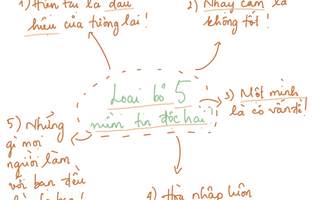 1) Hiện tại là dấu
hiệu của tương lai!
2) Nhạy cảm là
không tốt!
Loại bỏ 5
niềm tin độc hại!
3) Một mình
là có vấn đề!
5) Những
gì mọi
người làm
với bạn đều
4) Hòa nhập luôn